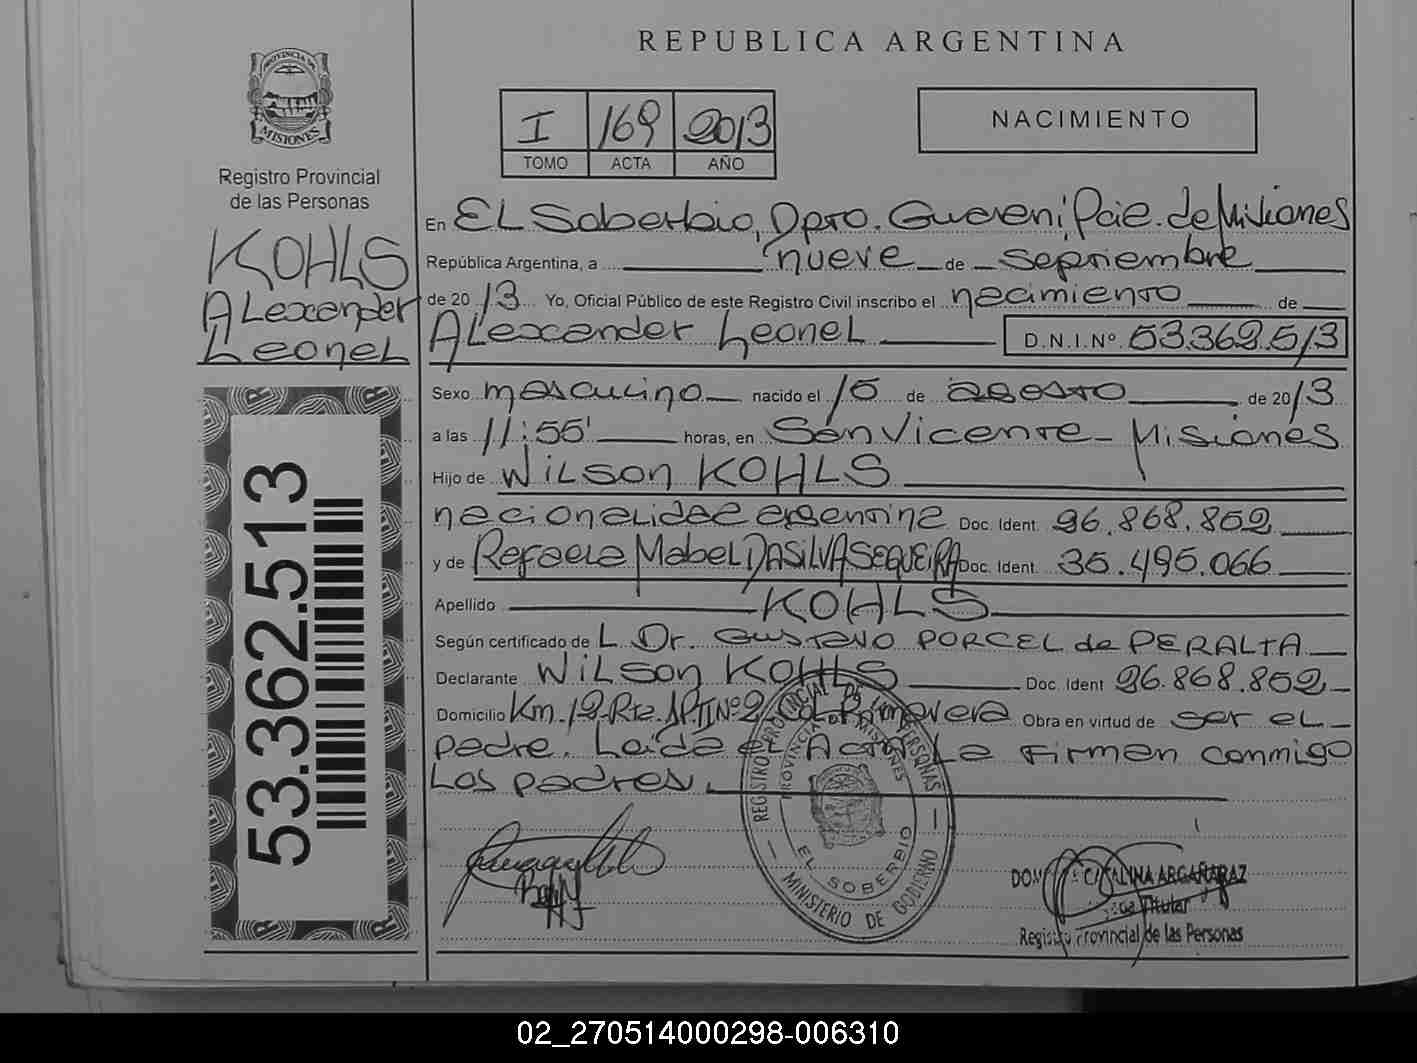 REPUBLICA ARGENTINA
PROVINCIA DE
MISIONES
Registro Provincial
de las Personas
KOHLS
Alexander
Leonel
53.362.513
I 169 2013
TOMO ACTA AÑO
NACIMIENTO
En El Soberbio, Dpto. Guarani, Pcia. de Misiones
República Argentina, a nueve de septiembre
de 20 13 Yo, Oficial Público de este Registro Civil inscribo el nacimiento de
Alexander Leonel D.N.I.Nº 53.362.513
Sexo masculino nacido el 15 de agosto de 2013
a las 11:55' horas, en San Vicente - Misiones
Hijo de Wilson KOHLS
nacionalidad argentina Doc. Ident. 96.868.852
y de Rafaela Mabel DASILVA SEQUEIRA Doc. Ident. 35.495.066
Apellido KOHLS
Según certificado de L Dr. Gustavo PORCEL de PERALTA
Declarante Wilson KOHLS Doc. Ident 96.868.852
Domicilio Km. 12 Rta. Nº2 Col. Primavera Obra en virtud de ser el
padre. Leida el Acta La firman conmigo
Los padres.
REGISTRO PROVINCIAL DE LAS PERSONAS
PROVINCIA DE MISIONES
EL SOBERBIO
MINISTERIO DE GOBIERNO
CATALINA ARGAÑARAZ
Titular
Registro Provincial de las Personas
02_270514000298-006310